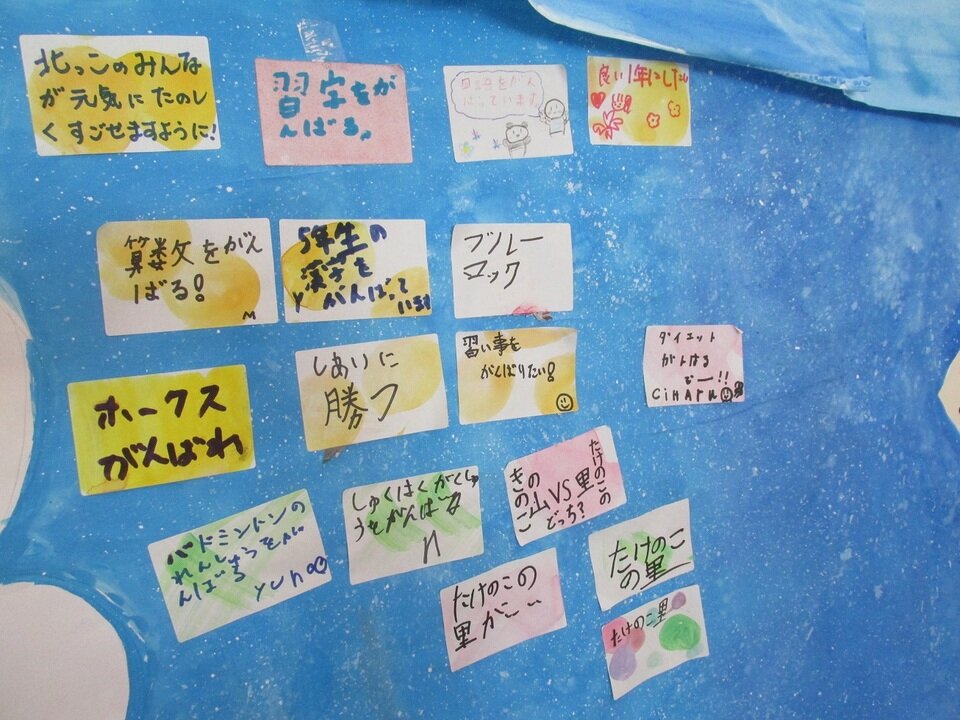 北っこのみんな
が元気にたのし
くすごせますように!
習字をが
んばる。
日記をがん
ばっています
良い1年にしたい
算数をがん
ばる!
M
5年生の
漢字を
がんばって
います
Y
ブルー
ロック
ホークス
がんばれ
しあいに
勝つ
習い事を
がんばりたい!
ダイエット
がんばる
ぞー!!
CiHARU
バドミントンの
れんしゅうをがん
ばる
yuna
しゅくはくがくしゅ
うをがんばる
n
きのこの山VS
たけのこの里
どっち?
たけのこの
里がいい
たけのこ
の里
たけのこ里